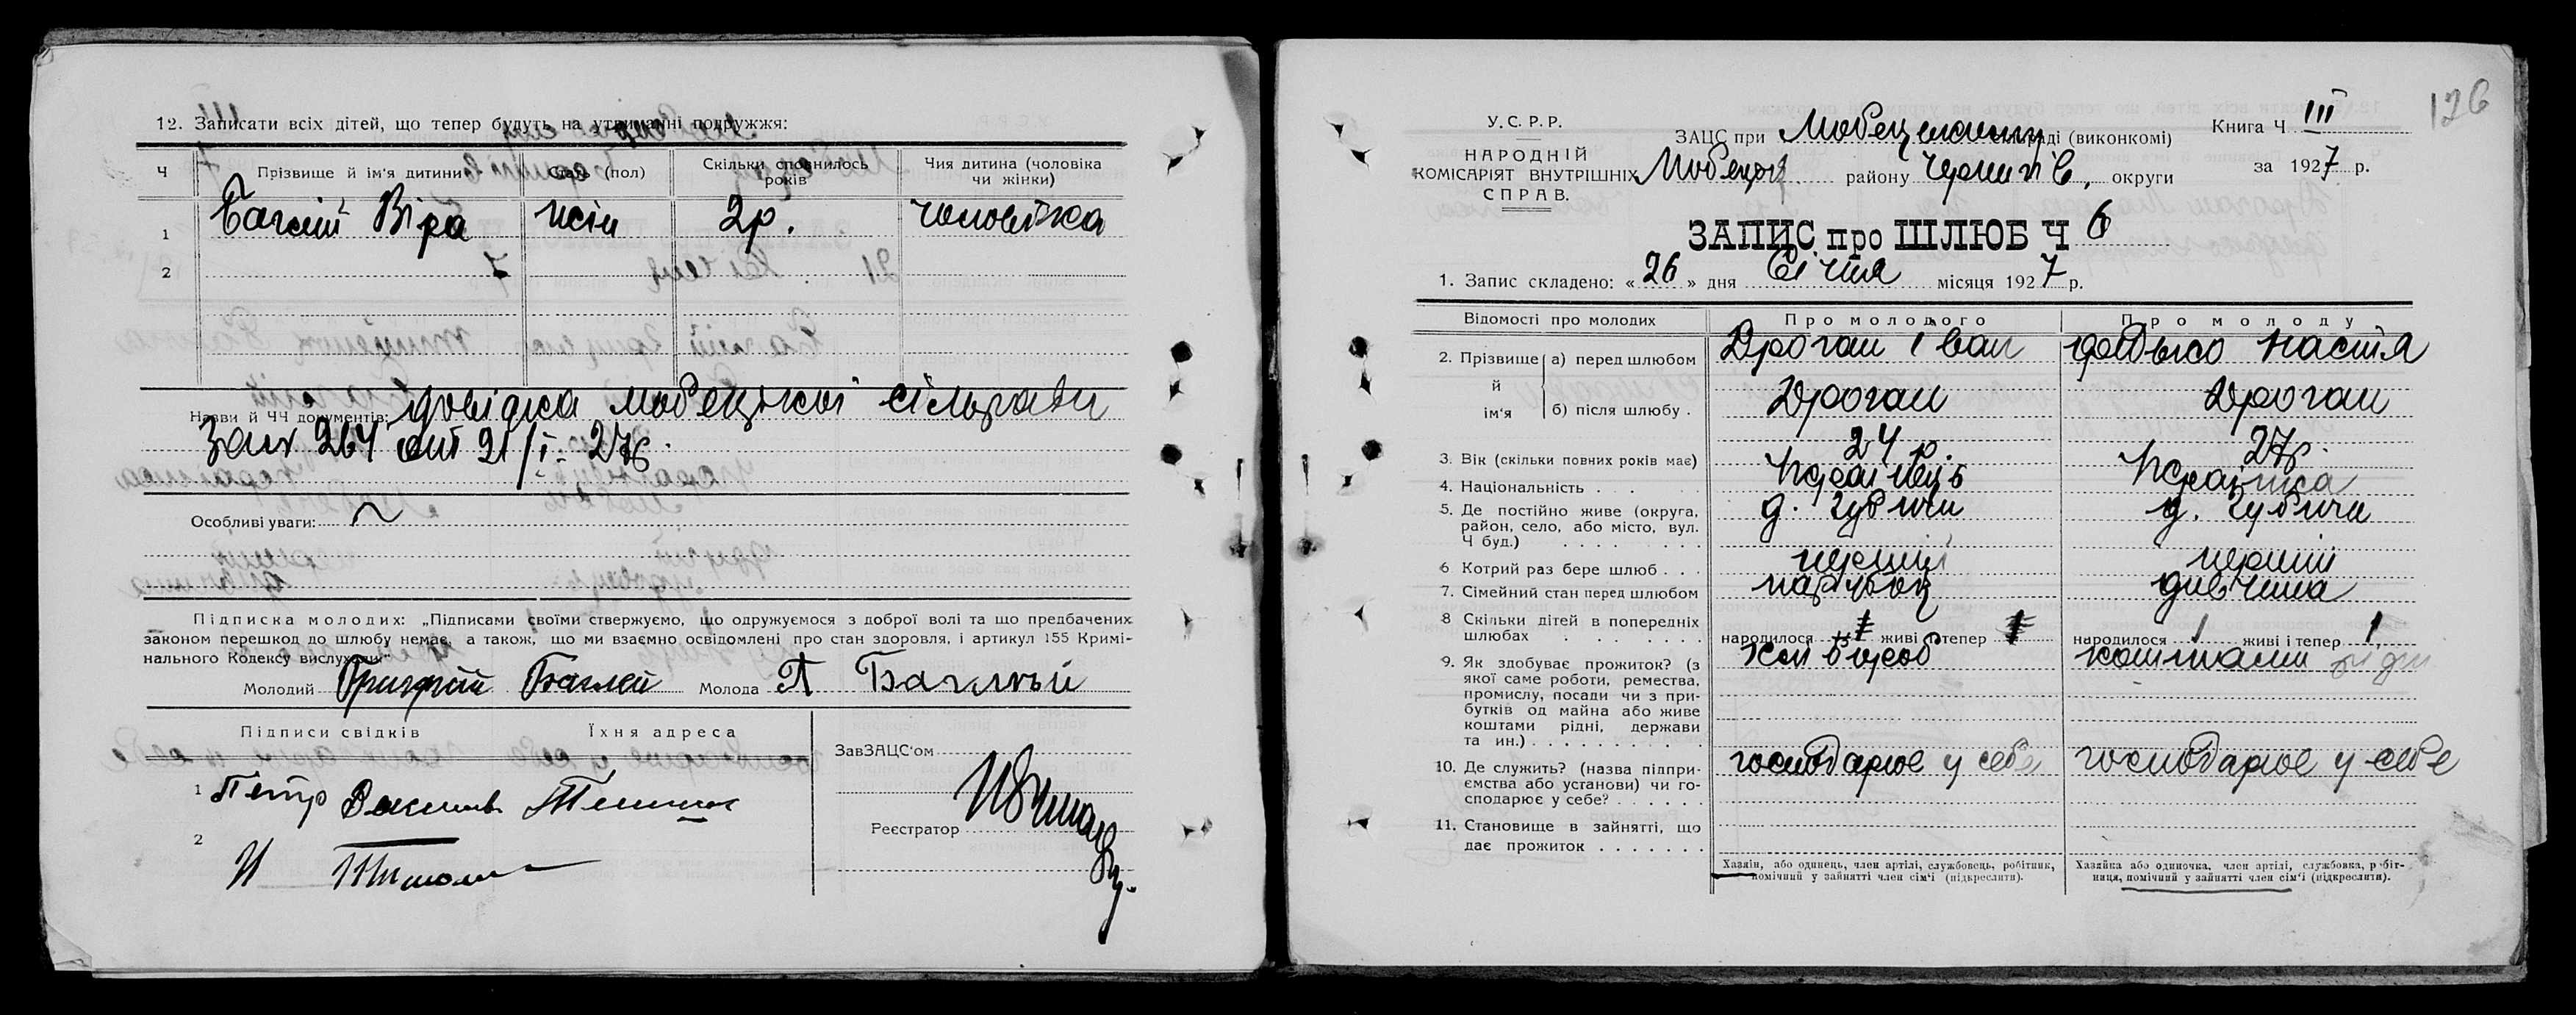 12. Записати всіх дітей, що тепер будуть на утриманні подружжя:
Ч
Прізвище й ім'я дитини
Стать (пол)
Скільки сповнилось років
Чия дитина (чоловіка чи жінки)
1 Баглий Віра жін 2р. чоловіка
2
Назви й ЧЧ документів: довідка Любецької сільради
за № 264 від 21/I-27р.
Особливі уваги:
Підписка молодих: „Підписами своїми стверджуємо, що одружуємося з доброї волі та що предбачених
законом перешкод до шлюбу немає, а також, що ми взаємно освідомлені про стан здоровля, і артикул 155 Кримі-
нального Кодексу вислухали"
Молодий Григорій Баглей Молода П Баглый
Підписи свідків
Їхня адреса
ЗавЗАЦС'ом
1 Петр
Реєстратор
2
126
У.С.Р.Р.
НАРОДНІЙ
КОМІСАРІЯТ ВНУТРІШНІХ
СПРАВ.
ЗАЦС при Любецькому раді (виконкомі)
Любецьк. району Чернигів. округи
Книга Ч III
за 1927 р.
ЗАПИС про ШЛЮБ Ч 6
1. Запис складено: « 26 » дня Січня місяця 1927 р.
Відомості про молодих
Про молодого
Про молоду
2. Прізвище й ім'я
а) перед шлюбом Дроган Іван Настя
б) після шлюбу . Дроган Дроган
3. Вік (скільки повних років має) 24 р. 27р.
4. Національність . . Українець Українка
5. Де постійно живе (округа, район, село, або місто, вул. Ч буд.) с. Губичи с. Губичи
6. Котрий раз бере шлюб . . . перший перший
7. Сімейний стан перед шлюбом парубок дівчина
8 Скільки дітей в попередніх шлюбах народилося живі і тепер народилося 1 живі і тепер 1
9. Як здобуває прожиток? (з якої саме роботи, ремества, промислу, посади чи з прибутків од майна або живе коштами рідні, держави та ин.) хлібороб коштами рідні
10. Де служить? (назва підприємства або установи) чи господарює у себе? господарює у себе господарює у себе
11. Становище в зайнятті, що дає прожиток
Хазяїн, або одинець, член артілі, службовець, робітник,
помічний у зайнятті член сім'ї (підкреслити).
Хазяйка або одиночка, член артілі, службовка, робіт-
ниця, помічний у зайнятті член сім'ї (підкреслити).